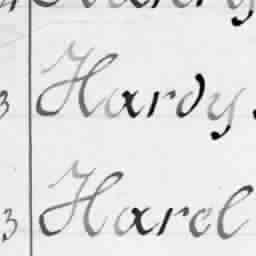 3 Hardy
3 Harcl